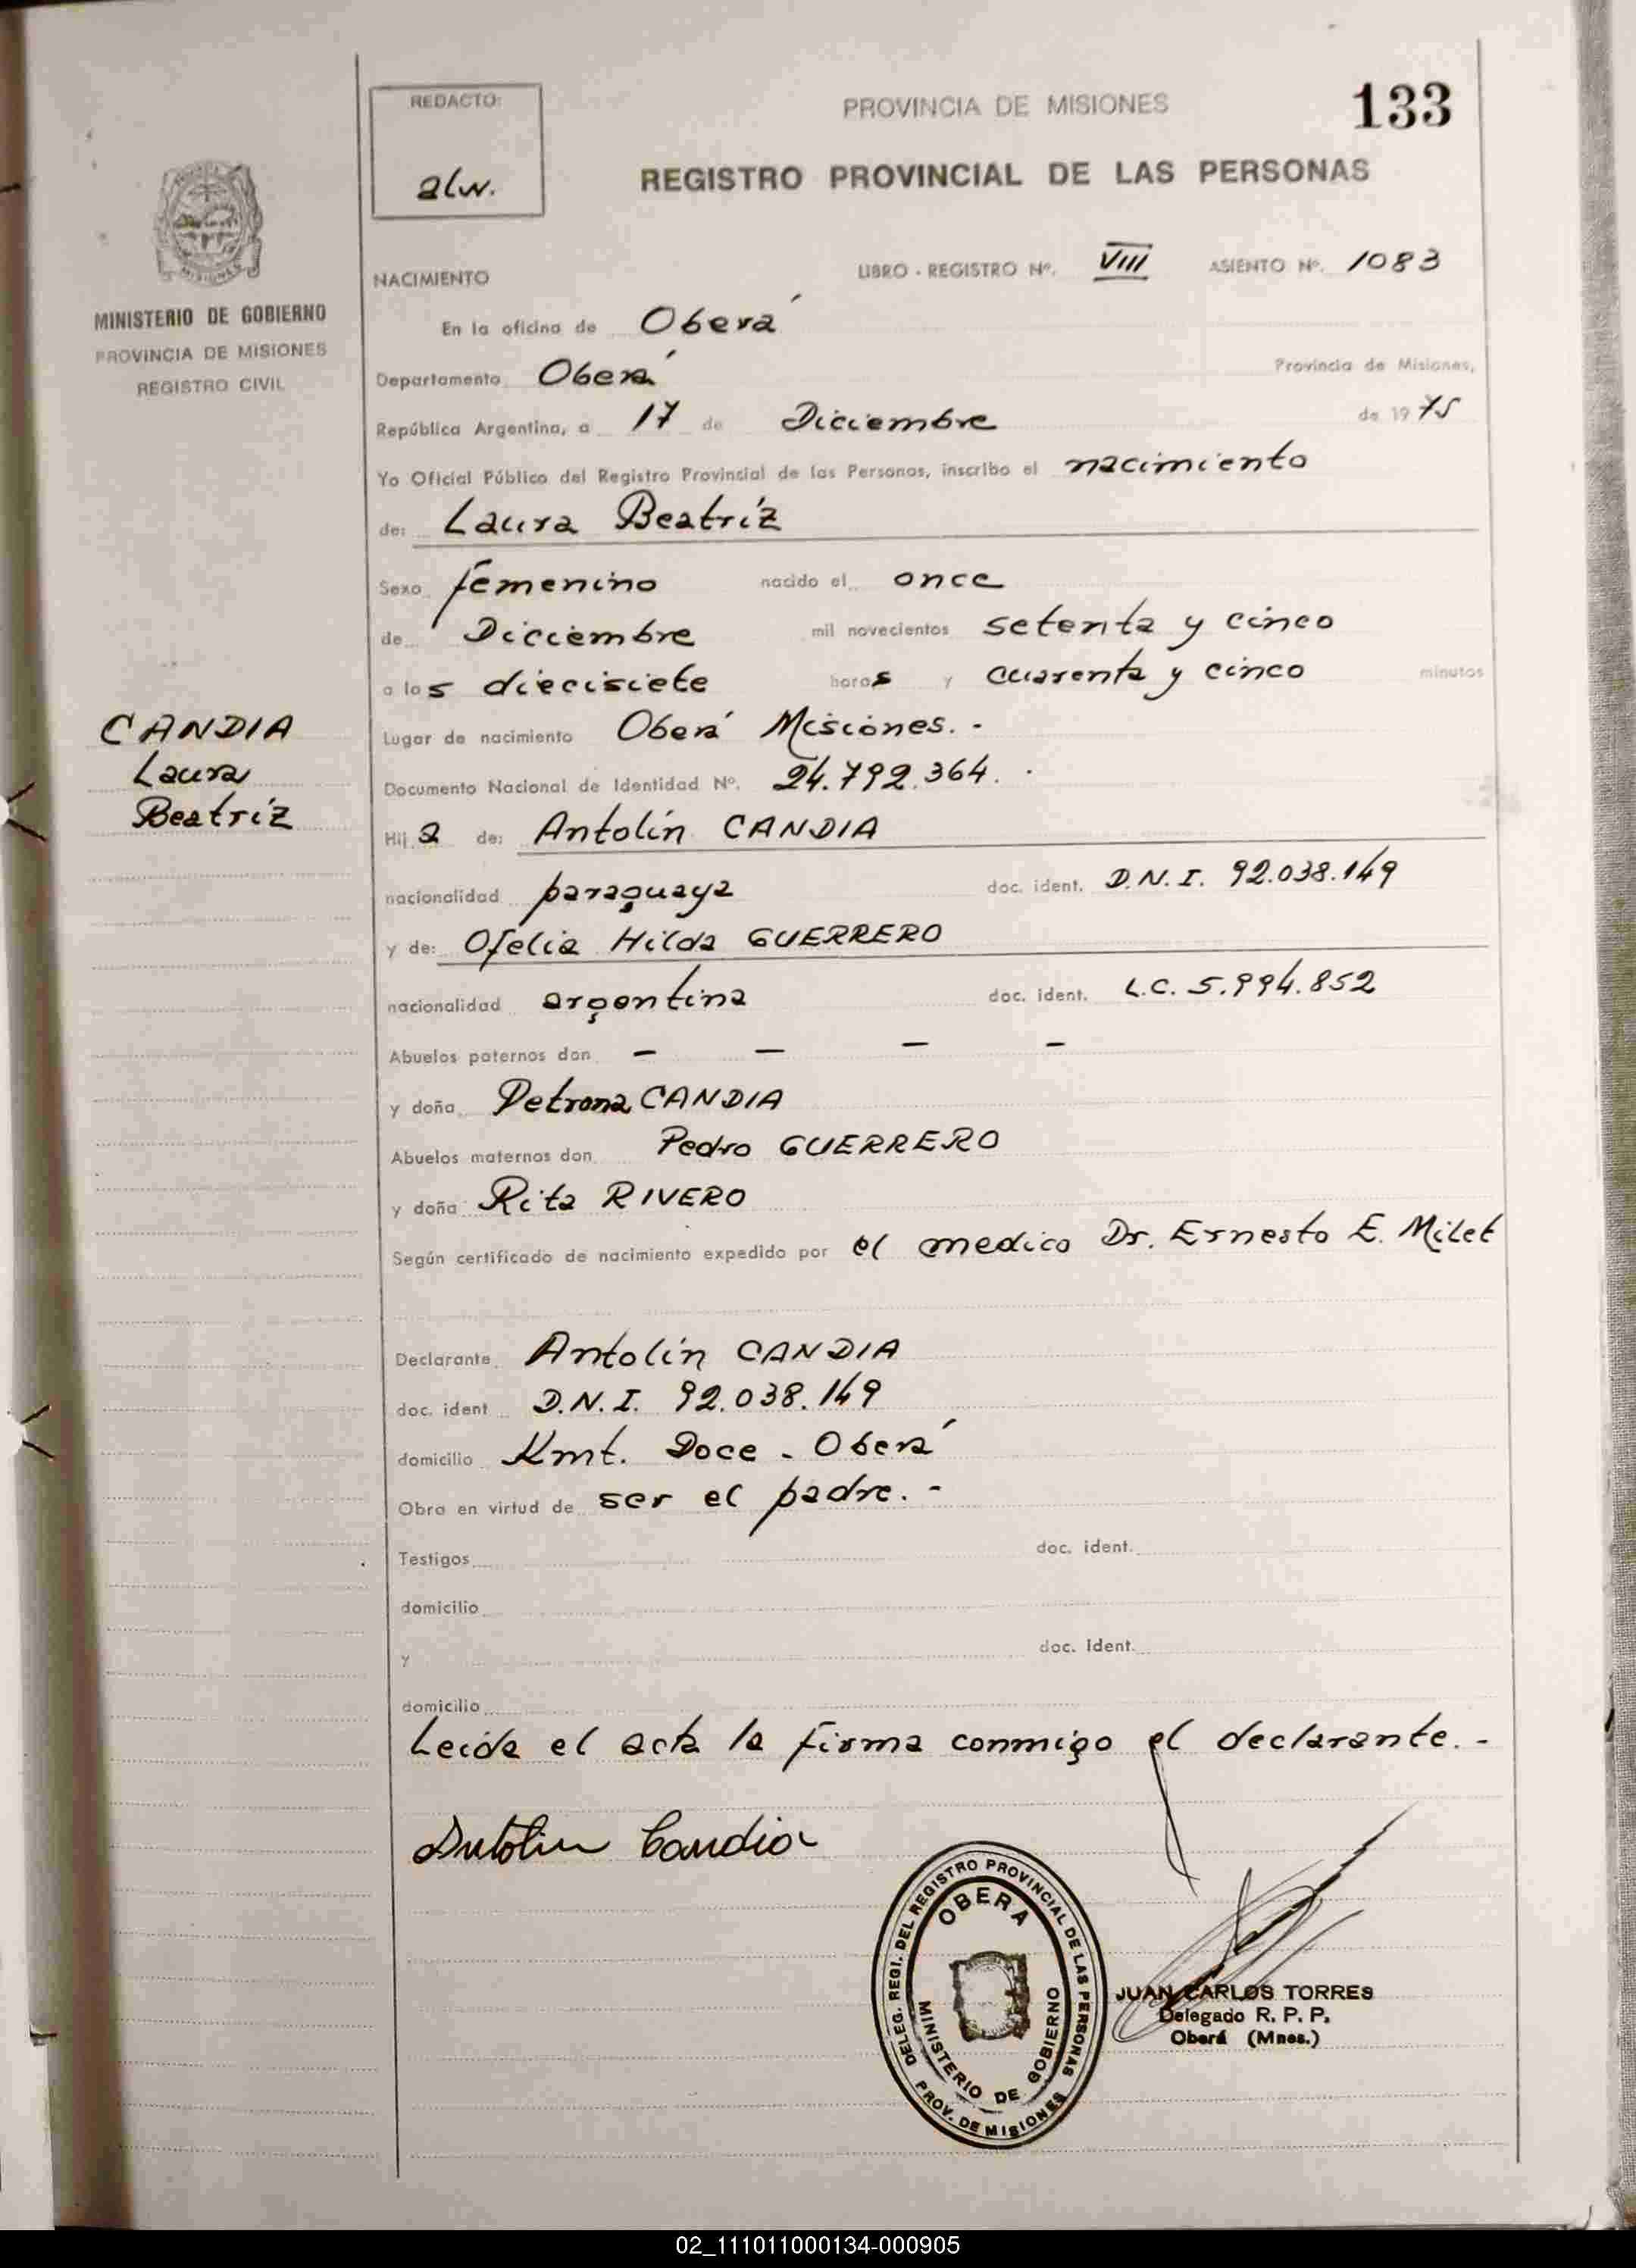 REDACTO:
alw.
PROVINCIA DE MISIONES
133
REGISTRO PROVINCIAL DE LAS PERSONAS
MINISTERIO DE GOBIERNO
PROVINCIA DE MISIONES
REGISTRO CIVIL
NACIMIENTO LIBRO - REGISTRO Nº. VIII ASIENTO Nº. 1083
En la oficina de Oberá
Departamento Oberá Provincia de Misiones,
República Argentina, a 17 de Diciembre de 1975
Yo Oficial Público del Registro Provincial de las Personas, inscribo el nacimiento
de: Laura Beatríz
Sexo femenino nacido el once
de Diciembre mil novecientos setenta y cinco
a los diecisiete horas y cuarenta y cinco minutos
CANDIA
Laura
Beatríz
Lugar de nacimiento Oberá Misiones. -
Documento Nacional de Identidad Nº. 24.792.364. .
Hija de: Antolín CANDIA
nacionalidad paraguaya doc. ident. D.N.I. 92.038.149
y de: Ofelia Hilda GUERRERO
nacionalidad argentina doc. ident. L.C. 5.994.852
Abuelos paternos don — — — —
y doña Petrona CANDIA
Abuelos maternos don Pedro GUERRERO
y doña Rita RIVERO
Según certificado de nacimiento expedido por el medico Dr. Ernesto E. Milet
Declarante Antolín CANDIA
doc. ident D.N.I. 92.038.149
domicilio Kmt. Doce - Oberá
Obra en virtud de ser el padre. -
Testigos doc. ident.
domicilio
y doc. Ident.
domicilio
Leida el acta la firma conmigo el declarante. -
Antolin Candia
DELEG. REGI. DEL REGISTRO PROVINCIAL DE LAS PERSONAS
OBERA
MINISTERIO DE GOBIERNO
PROV. DE MISIONES
JUAN CARLOS TORRES
Delegado R. P. P.
Oberá (Mnes.)
02_111011000134-000905